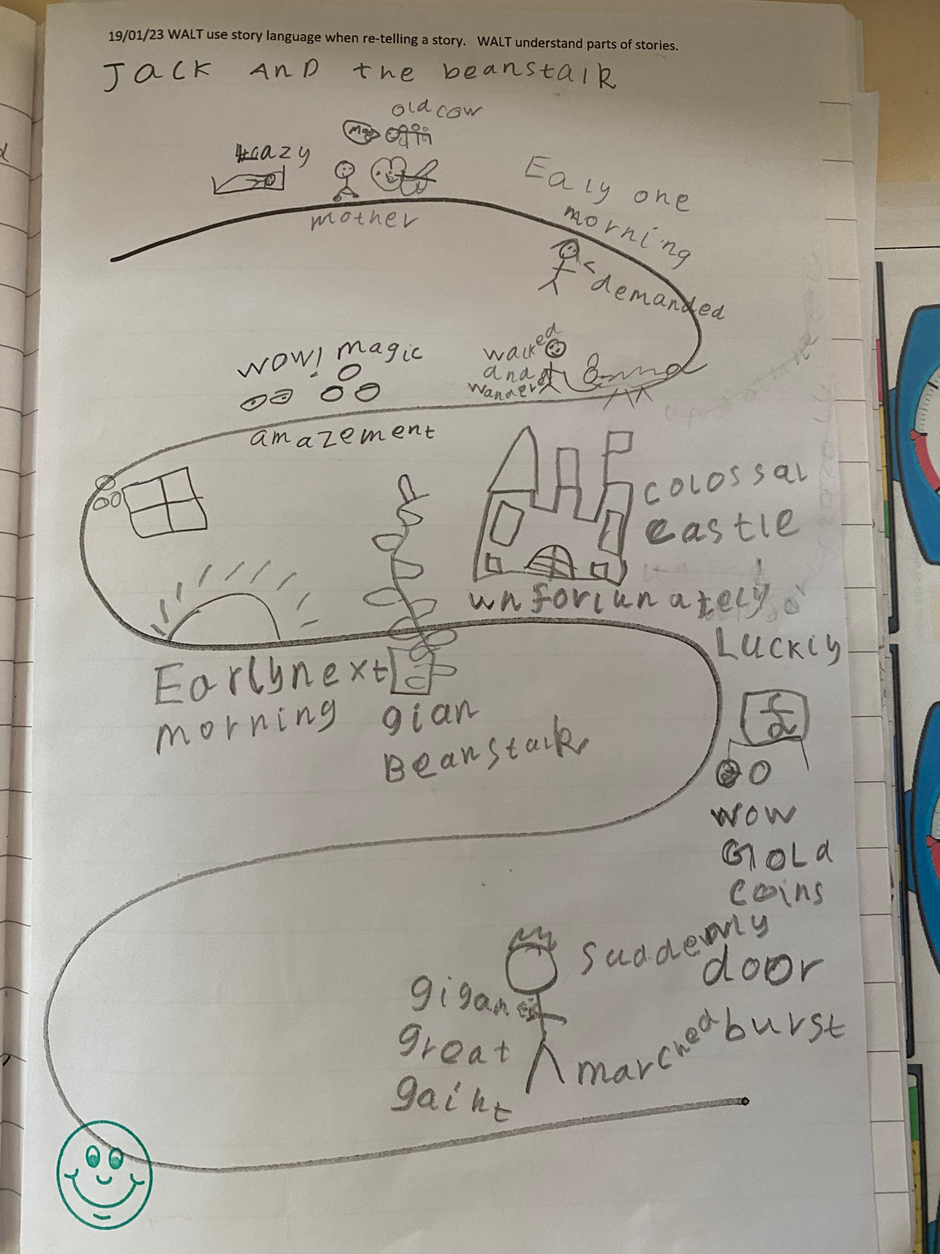 19/01/23 WALT use story language when re-telling a story.   WALT understand parts of stories.
JACK AND the beanstalk
old cow
Moo
lazy
mother
Ealy one
morning
demanded
walked
and
wander
wow! magic
amazement
colossal
castle
unforiunately
Luckly
Early next
morning
gian
Beanstalk
wow
Gold
coins
suddenly
door
burst
marched
gigan
great
gaint